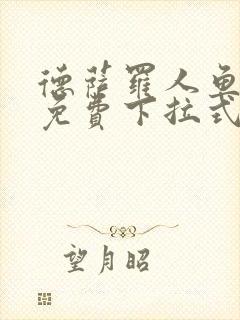 德萨罗人鱼
免费下拉式
望月昭